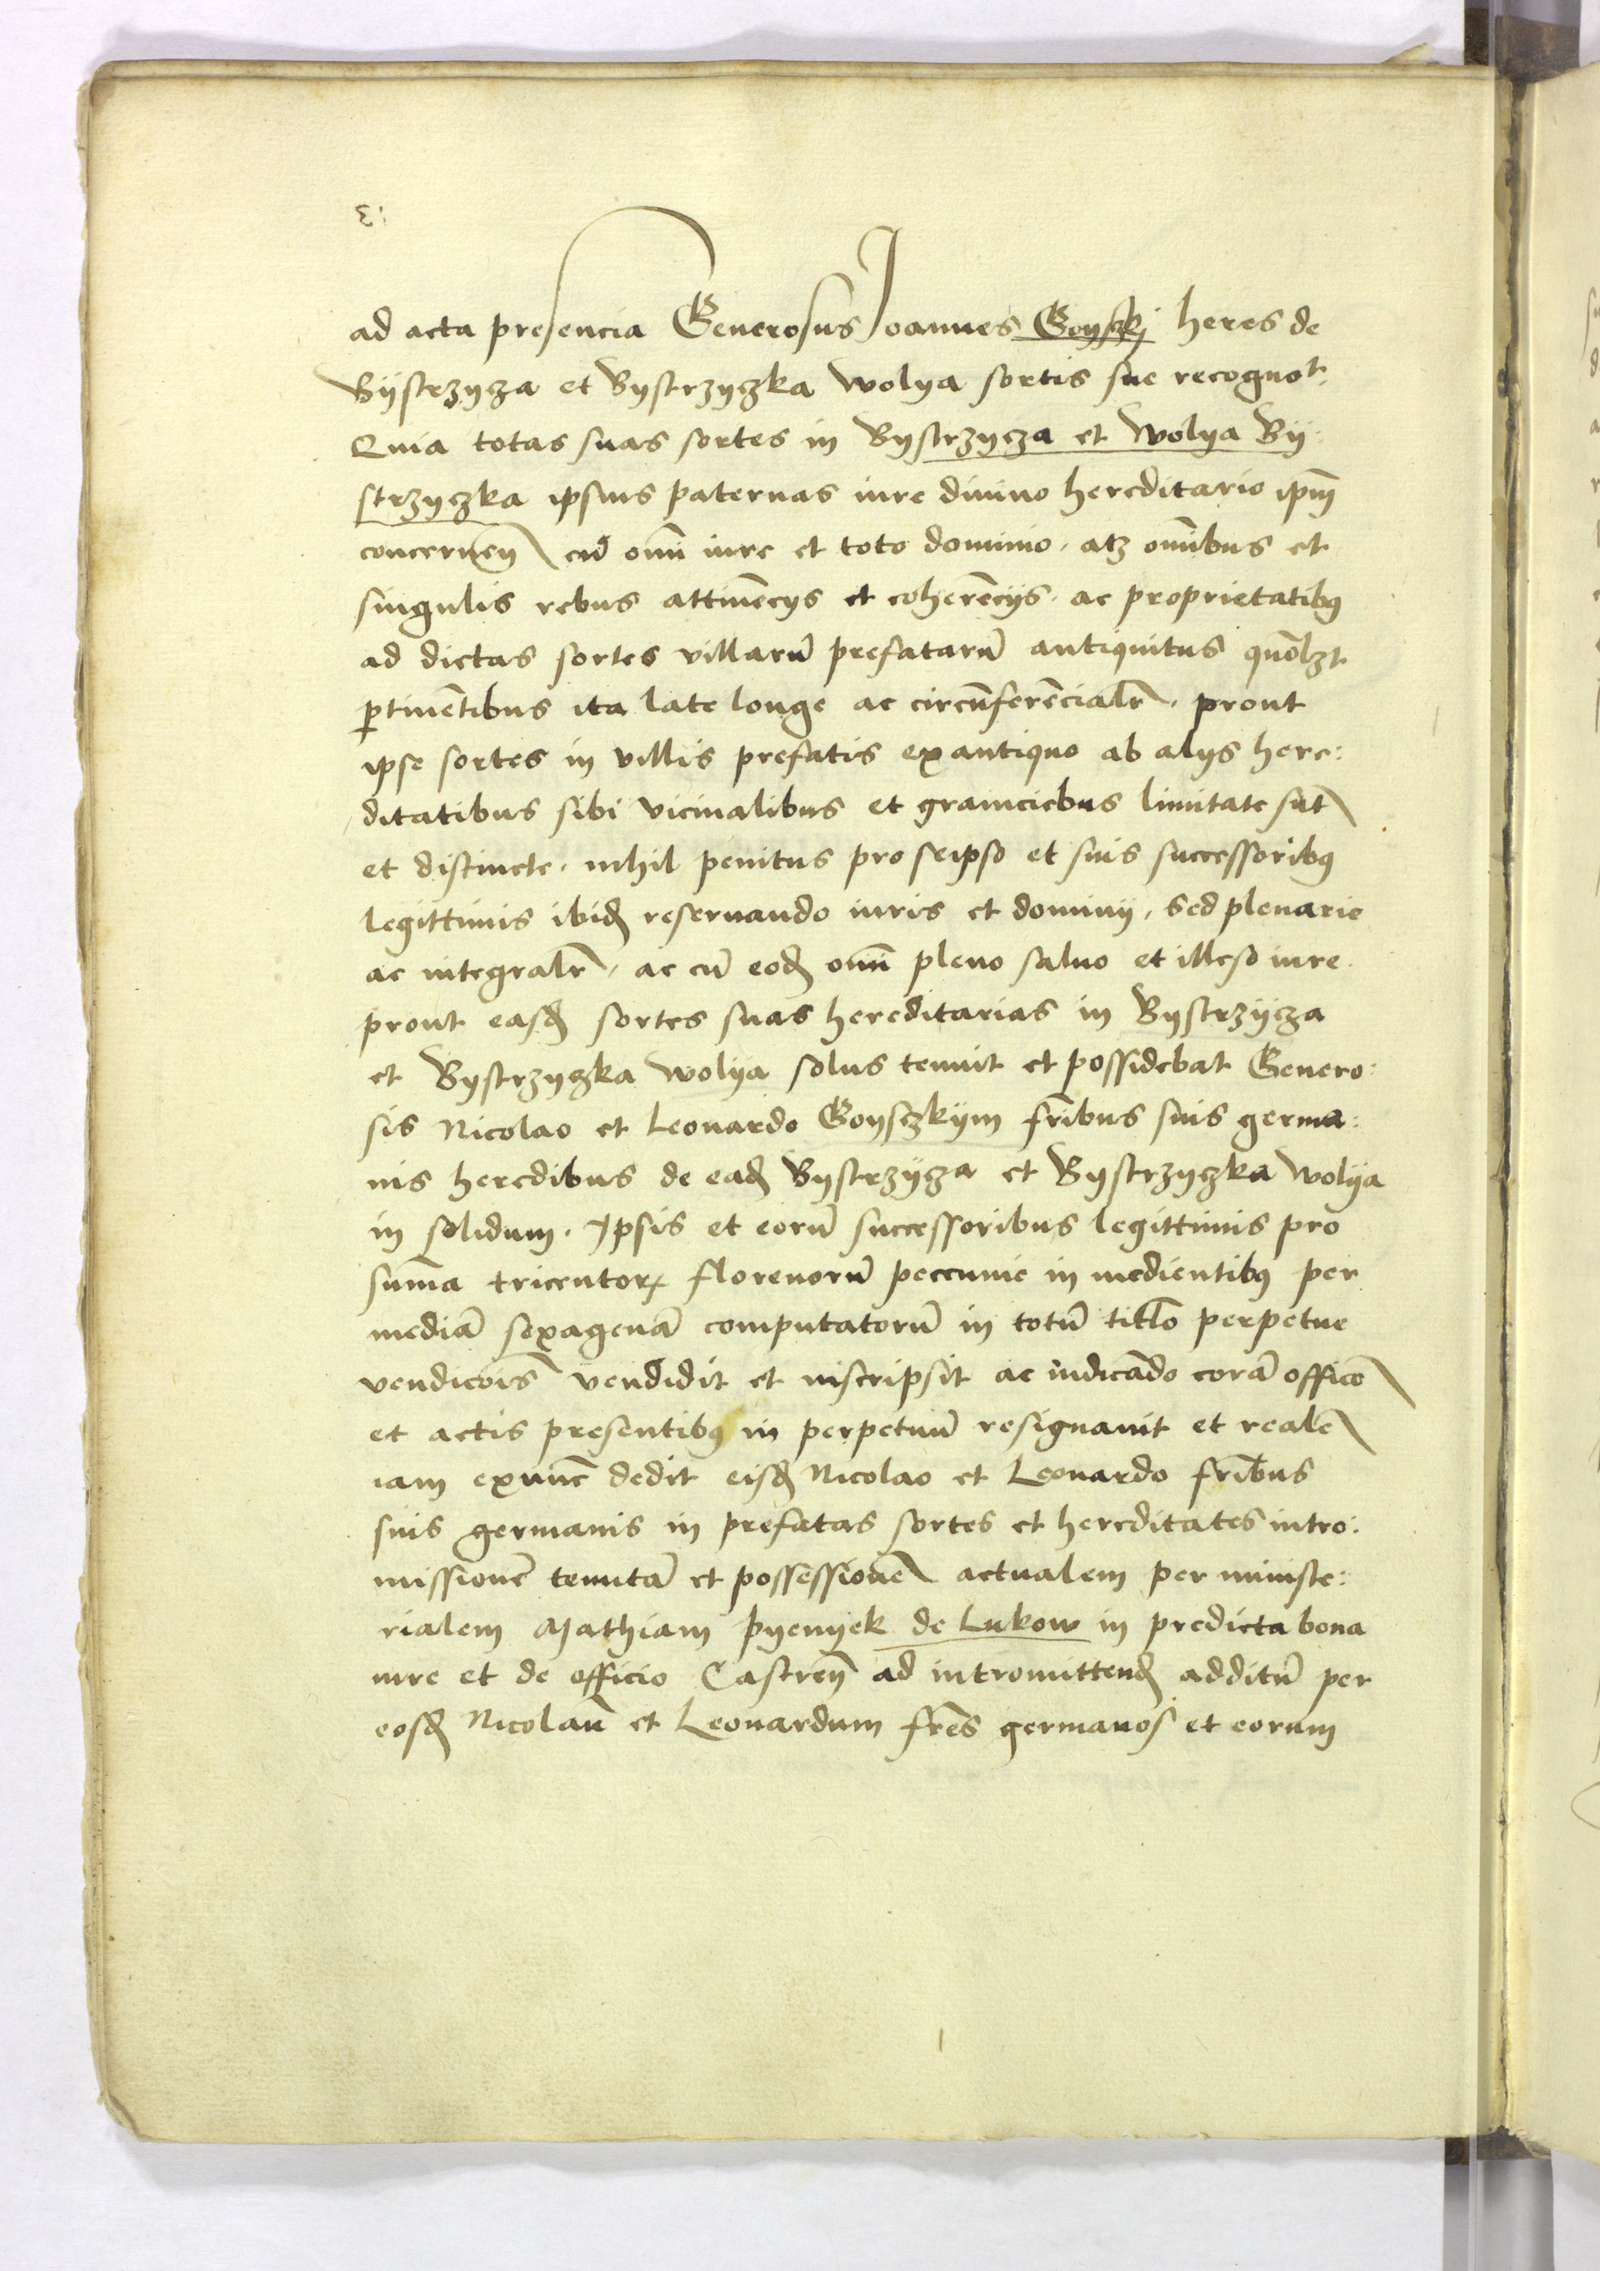 ad acta presencia Generosus Joannes Goyszkj heres de
Bÿstrzycza et Bystrzyczka wolya sortis sue recognot.
Quia totas suas sortes in Bystrzycza et Wolya Bÿ:
strzyczka ipsius paternas iure diuino hereditario ipm̄
concerneñ cū om̄i iure et toto dominio. atqz om̄ibus et
singulis rebus attinēcÿs et coherēcÿs. ac proprietatibꝰ
ad dictas sortes villarū prefatarū antiquitus quōlzt
ꝑtinētibus ita late longe ac circūferēcialr̄. prout
ipse sortes in villis prefatis ex antiquo ab alÿs here:
ditatibus sibi vicinalibus et graniciebus limitate sūt
et distincte. nihil penitus pro seipso et suis successoribꝰ
legittimis ibid̄ reseruando iuris et dominÿ, Sed plenarie
ac integralr̄, ac cū eod̄ om̄i pleno saluo et illeso iure.
prout easd̄ sortes suas hereditarias in Bystrzÿcza
et Bystrzyczka wolÿa solus tenuit et possidebat Genero:
sis Nicolao et Leonardo Goysczkÿm fr̄ibus suis germa:
nis heredibus de ead̄ Bystrzÿcza et Bystrzyczka wolÿa
in solidum. Ipsis et eorū successoribus legittimis pro
sum̄a tricentorꝝ florenorū peccunie in medientibꝰ per
mediā sexagenā computatorū in totū titl̄o perpetue
vendicōis vendidit et inscripsit ac iudicādo corā officō
et actis presentibꝰ in perpetuū resignauit et realē
iam exnūc dedit eisd̄ Nicolao et Leonardo fr̄ibus
suis germanis in prefatas sortes et hereditates intro:
missionē tenutā et possessionē actualem per ministe:
rialem Mathiam pyenyek de Lukow in predicta bona
iure et de officio Castreñ ad intromittend̄ additū per
eosd̄ Nicolaū et Leonardum fr̄es germanos et eorum